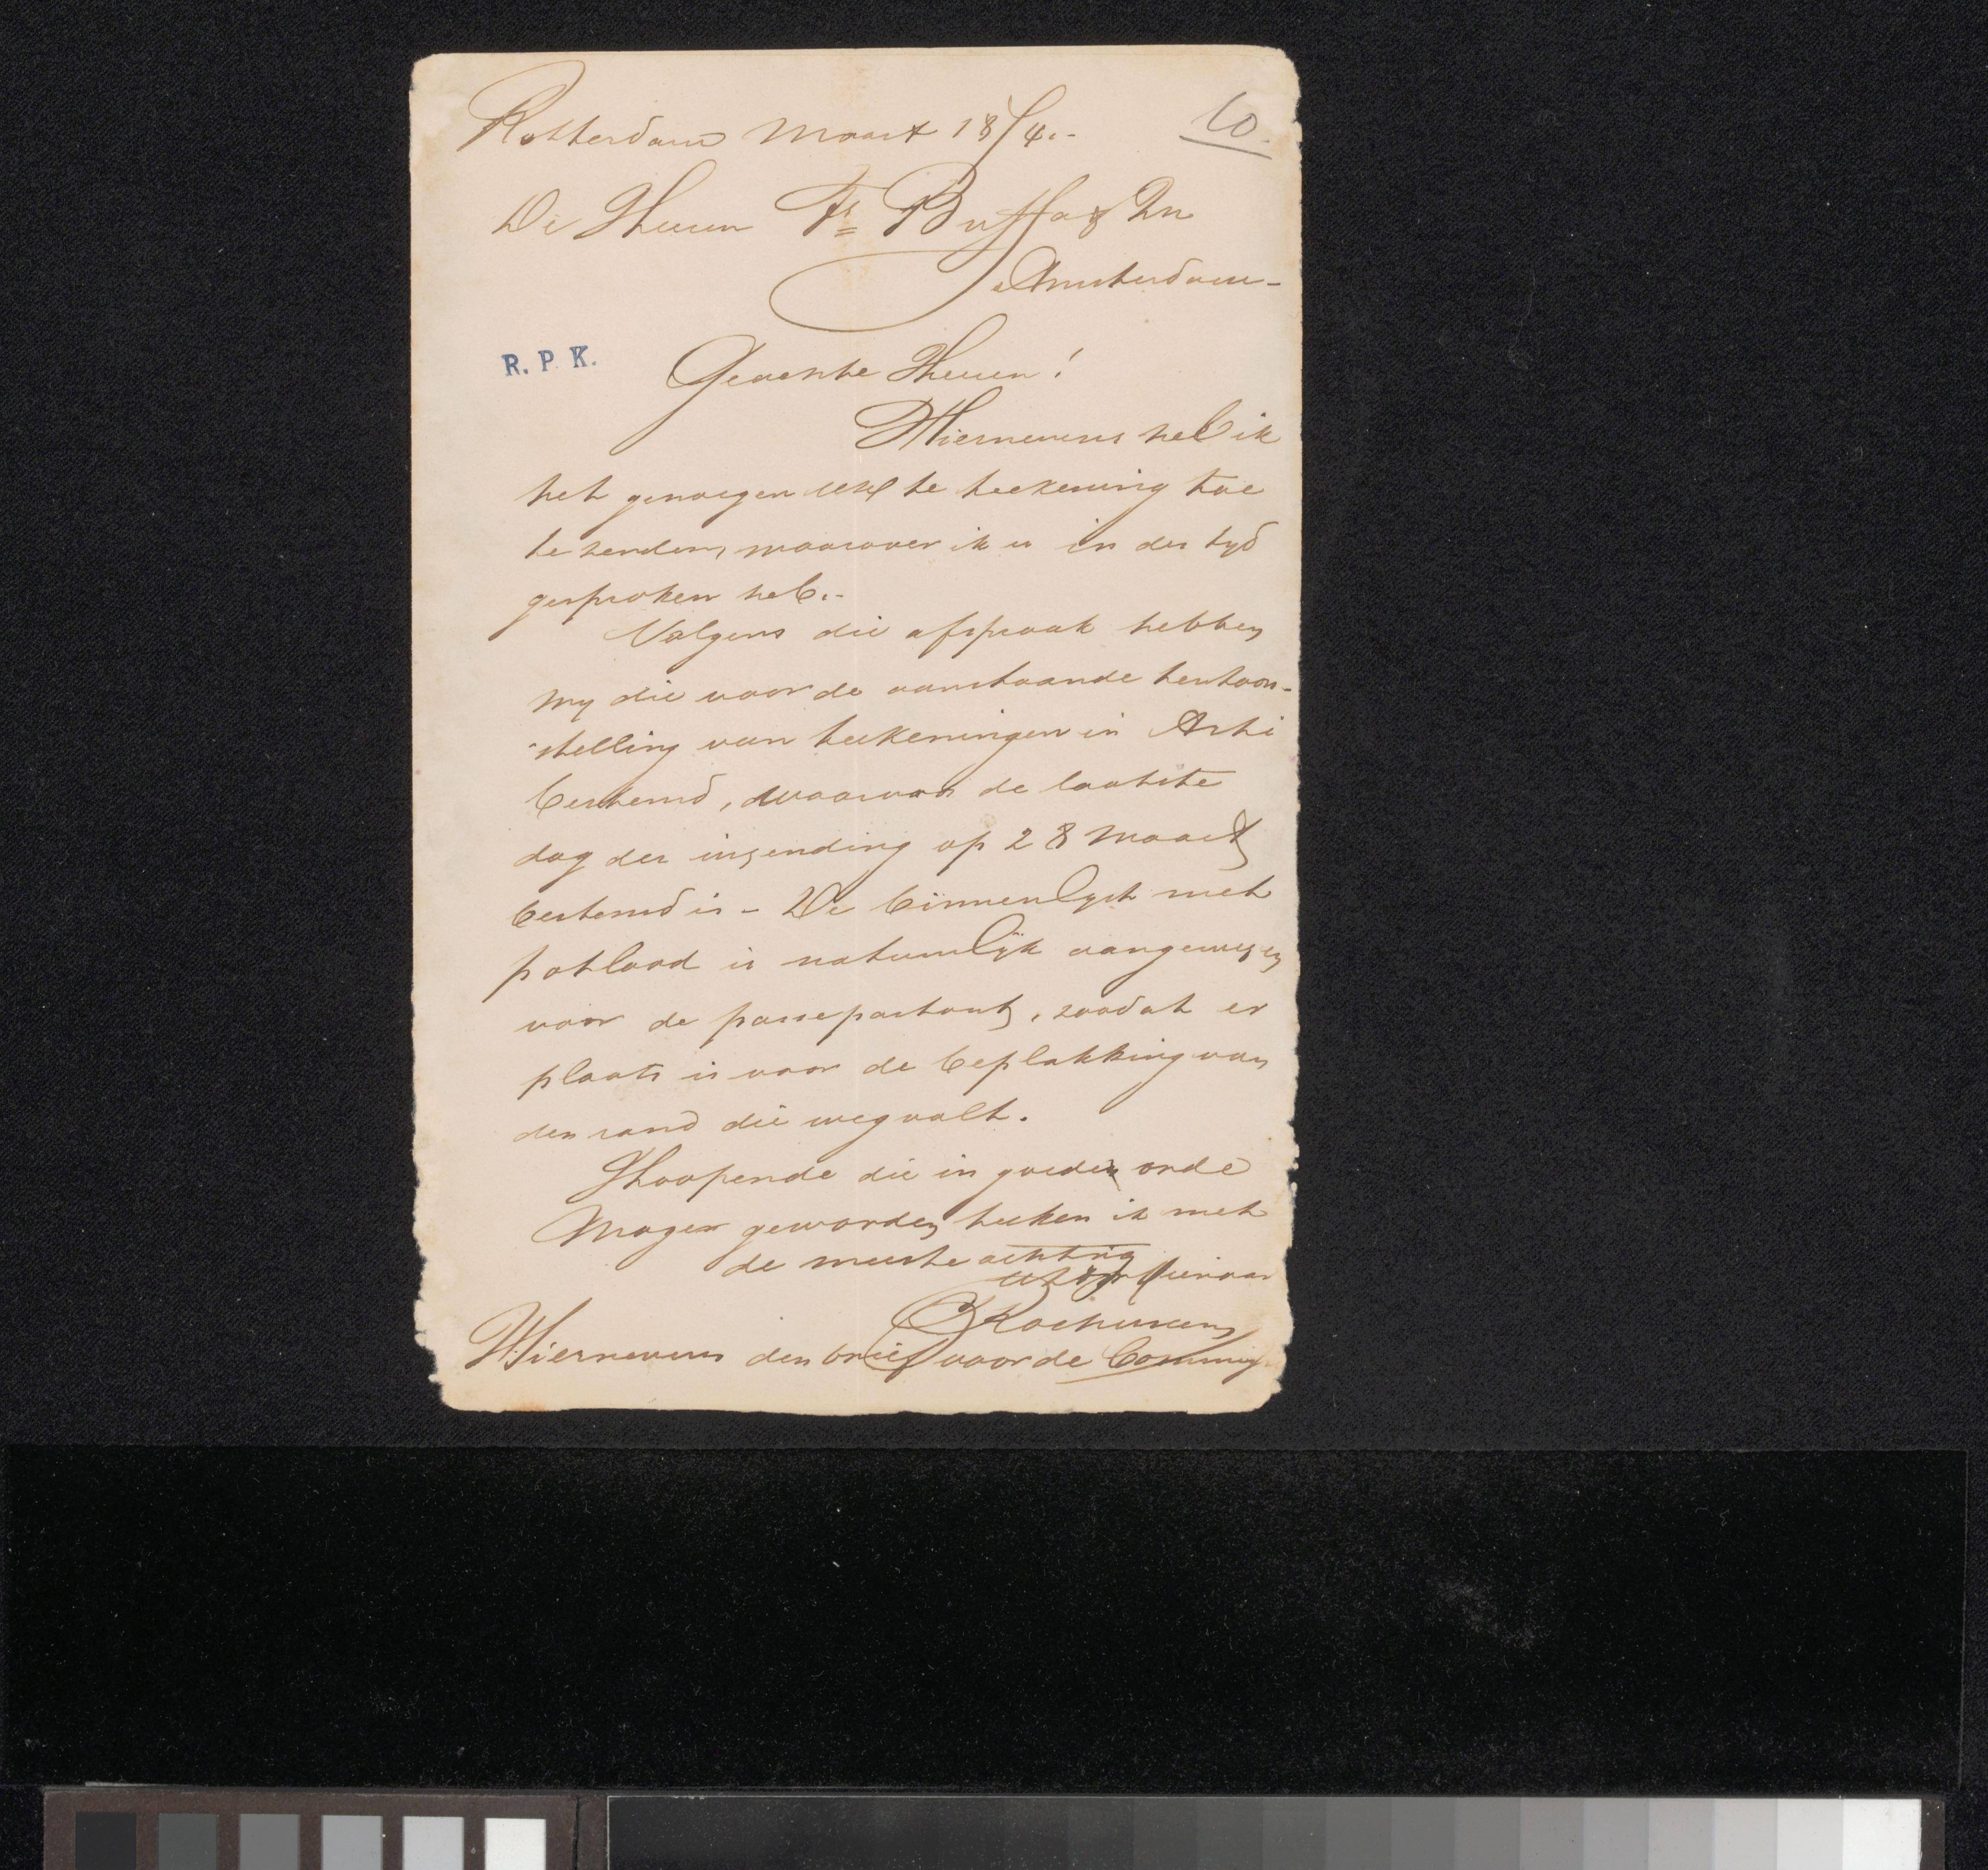 Rotterdam Maart 18/4.-
10.
De Heeren Fs Buffa & Zn
Amsterdam-
R. P. K.
Geachte Heeren!
Hiernevens heb ik
het genoegen UEd te teekening toe
te zenden, waarover ik u in der tyd
gesproken heb.-
Volgens die afspraak hebben
wy die voor de aanstaande tentoon-
stelling van teekeningen in Arti
bestemd, waarvan de laatste
dag der inzending op 28 Maart
bestemd is - De binnenlyst met
potlood is natuurlyk aangewezen
voor de passepartout, zoodat er
plaats is voor de beplakking van
den rand die wegvalt.
Hoopende die in goede orde
moge geworden, teeken ik met
de meeste achting
UEd dienaar
CRochussen
Hiernevens den brief voor de Commiss